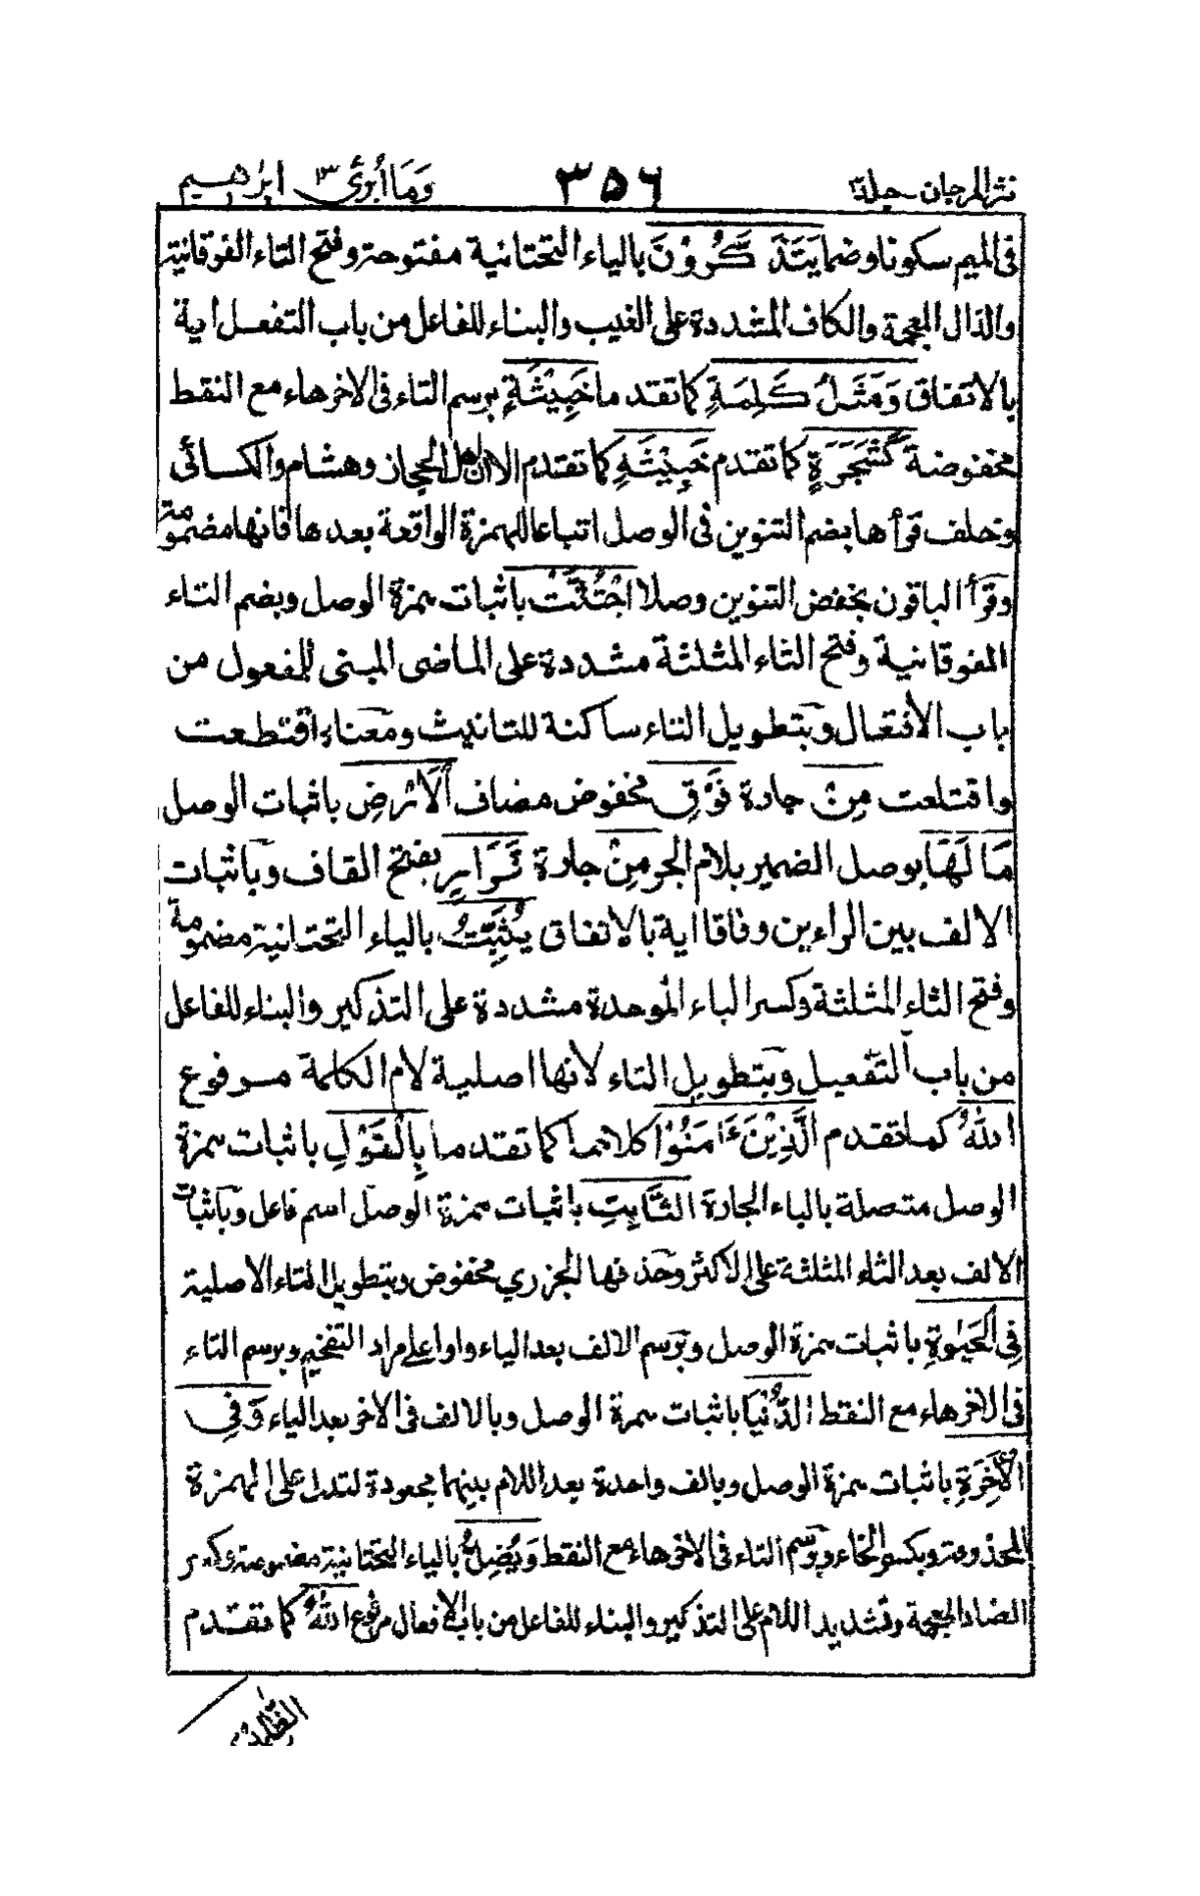 نثر المرجان - جلد٣ ٣٥٦ وَمَا أُبَرِّئُ ١٣ ابرٰهيم
فى الميم سكونا وضما يَتَذَكَّرُوْنَ بالياء التحتانية مفتوحة وفتح التاء الفوقانية
والذال المعجمة والكاف المشددة على الغيب والبناء للفاعل من باب التفعل اية
بالاتفاق وَمَثَلُ كَلِمَةٍ كما تقدما خَبِيْثَةٍ برسم التاء فى الاخر هاء مع النقط
مخفوضة كَشَجَرَةٍ كما تقدم خَبِيْثَةِ كما تقدم الا ان اهل الحجاز وهشام والكسائى
وخلف قرأها بضم التنوين فى الوصل اتباعا للهمزة الواقعة بعدها فانها مضمومة
وقرأ الباقون بخفض التنوين وصلا اجْتُثَّتْ باثبات همزة الوصل وبضم التاء
الفوقانية وفتح الثاء المثلثة مشددة على الماضى المبنى للمفعول من
باب الافتعال وبتطويل التاء ساكنة للتانيث ومعناه اقتطعت
واقتلعت مِنْ جارة فَوْقِ مخفوض مضاف الْاَرْضِ باثبات الوصل
مَا لَهَا بوصل الضمير بلام الجر مِنْ جارة قَرَارٍ بفتح القاف وباثبات
الالف بين الراءين وفاقا اية بالاتفاق يُثَبِّتُ بالياء التحتانية مضمومة
وفتح الثاء المثلثة وكسر الباء الموحدة مشددة على التذكير والبناء للفاعل
من باب التفعيل وبتطويل التاء لانها اصلية لام الكلمة مرفوع
اللهُ كما تقدم الَّذِيْنَ ءَامَنُوْا كلاهما كما تقدما بِالْقَوْلِ باثبات همزة
الوصل متصلة بالباء الجارة الثَّابِتِ باثبات همزة الوصل اسم فاعل وباثبات
الالف بعد الثاء المثلثة على الاكثر وحذفها الجزري مخفوض وبتطويل التاء الاصلية
فِى الْحَيٰوةِ باثبات همزة الوصل وبرسم الالف بعد الياء واوا على مراد التفخيم وبرسم التاء
فى الاخر هاء مع النقط الدُّنْيَا باثبات همزة الوصل وبالالف فى الاخر بعد الياء وَفِى
الْاٰخِرَةِ باثبات همزة الوصل وبالف واحدة بعد اللام بينهما مجعودة لتدل على الهمزة
المحذوفة وبكسر الخاء وبرسم التاء فى الاخر هاء مع النقط وَيُضِلُّ بالياء التحتانية مضمومة وكسر
الضاد المعجمة وتشديد اللام على التذكير والبناء للفاعل من باب الافعال مرفوع اللهُ كما تقدم
الظّٰلمين